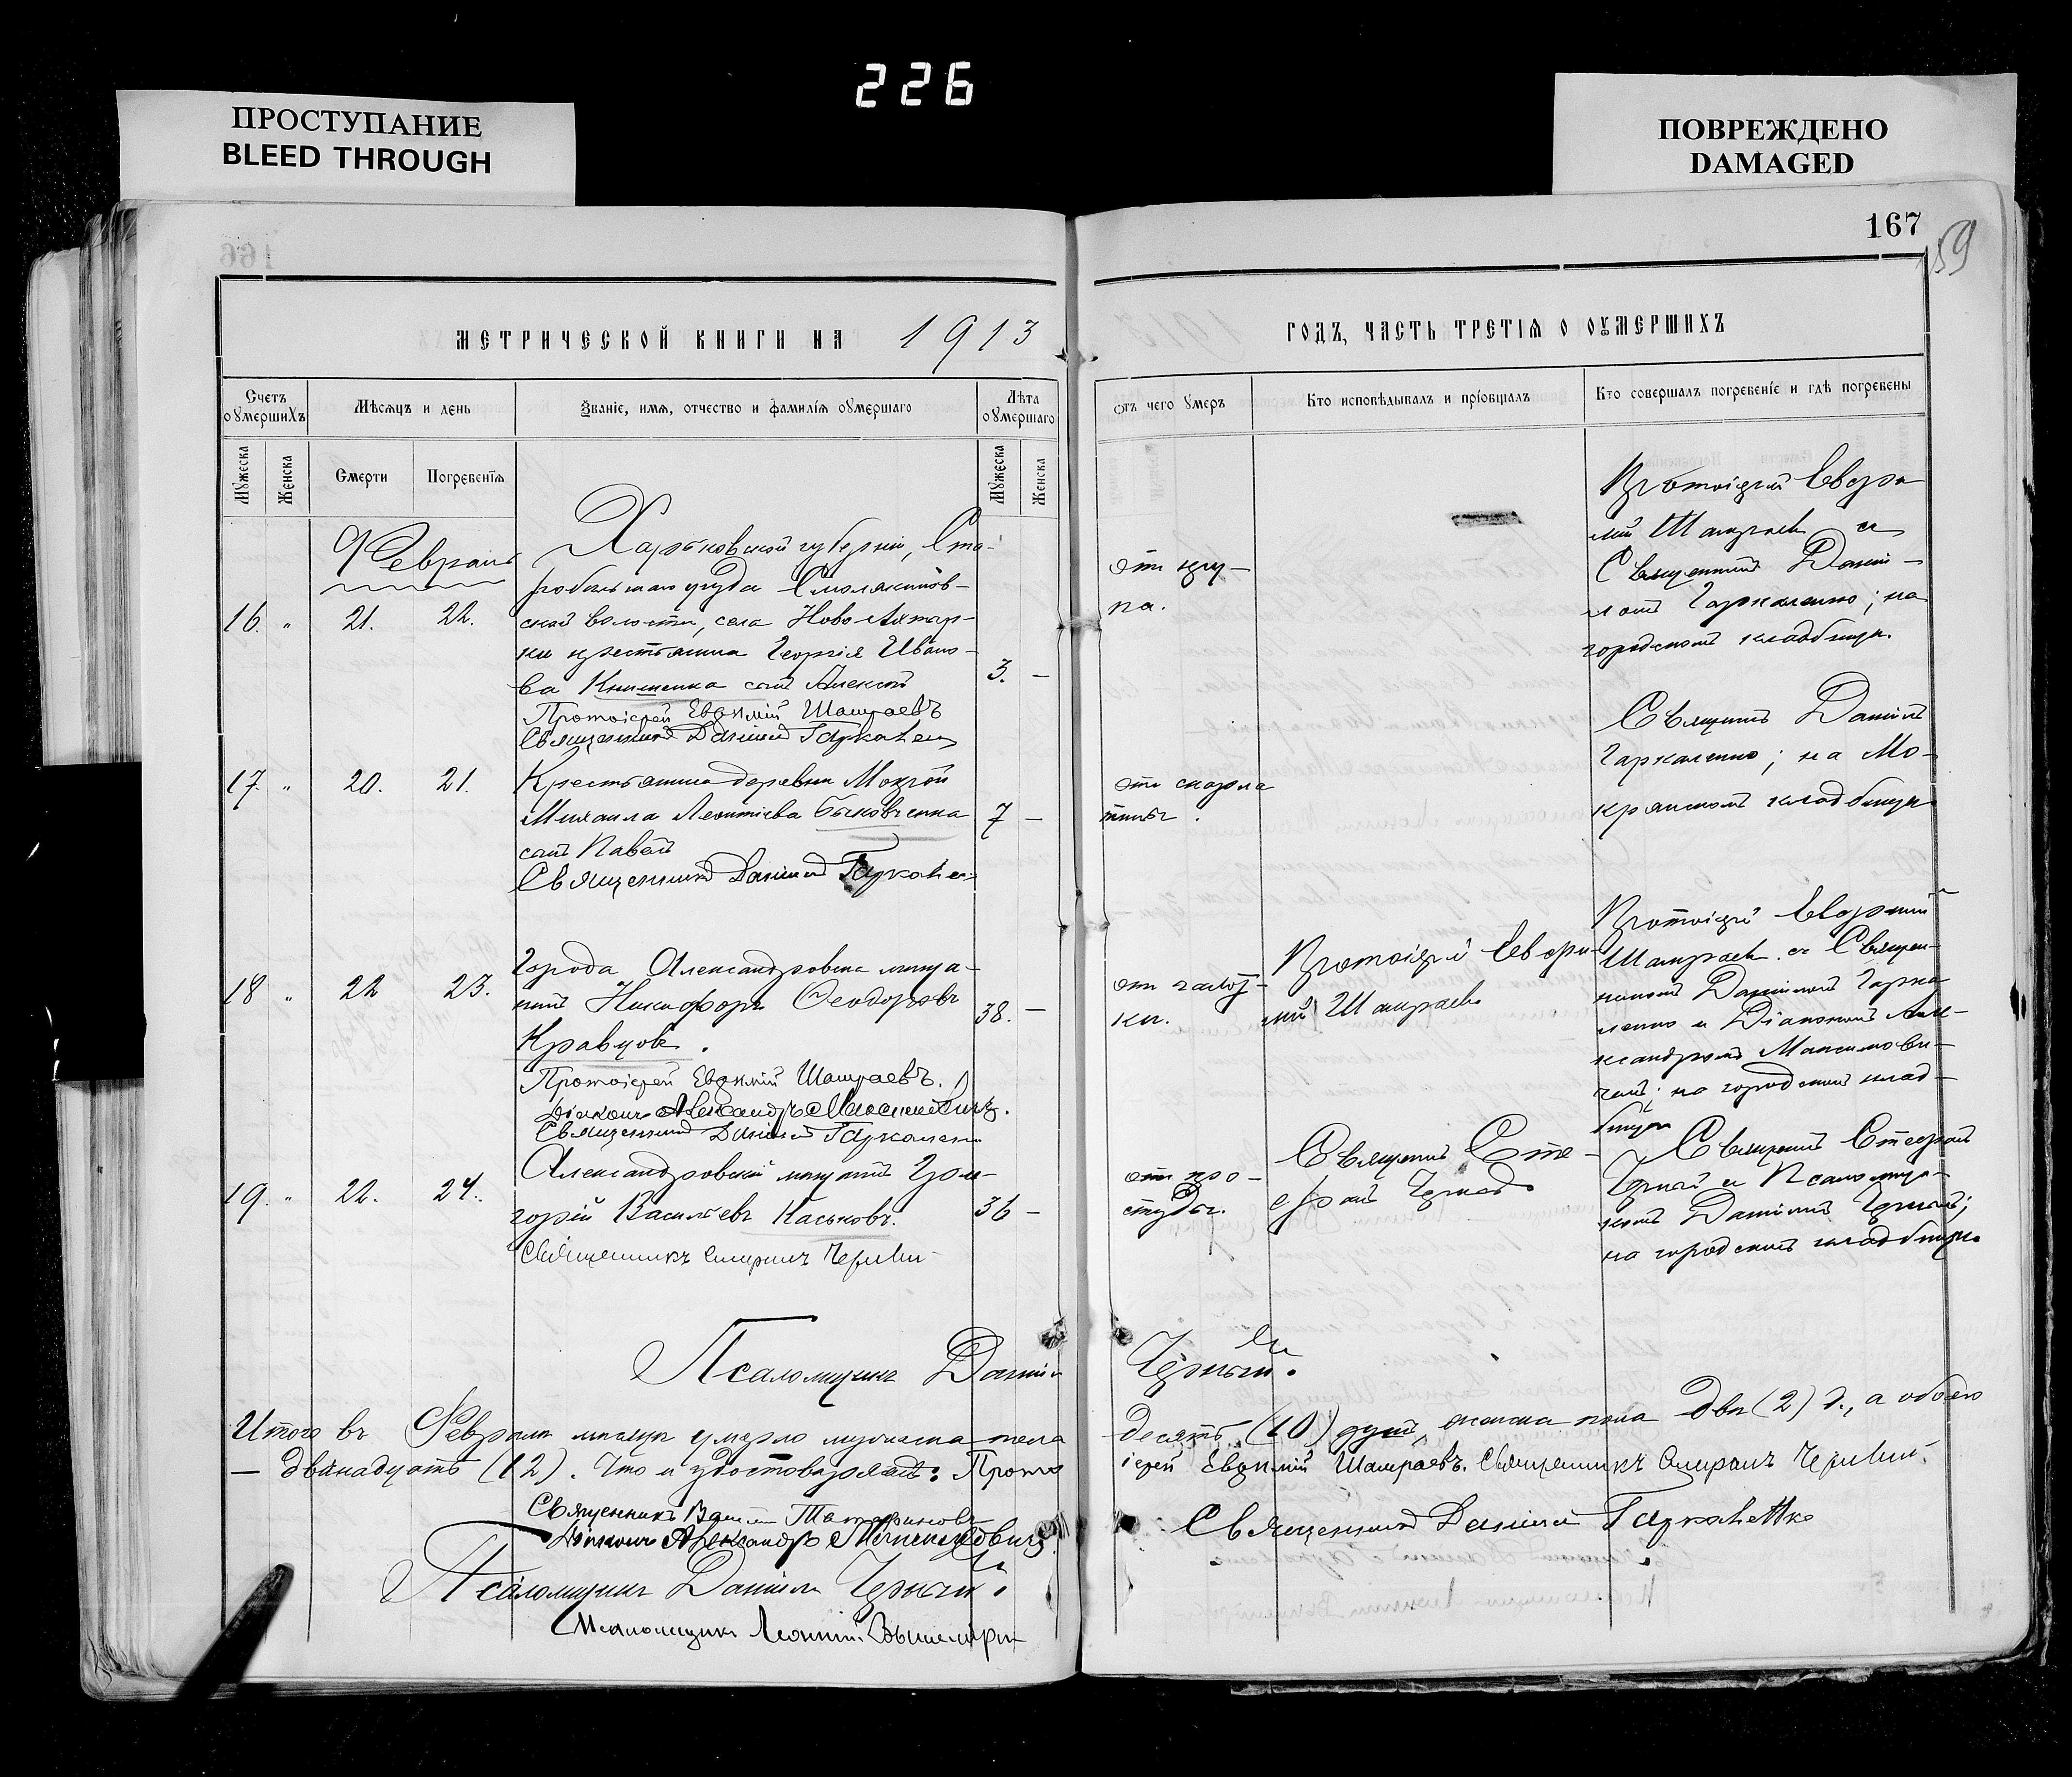 226
ПРОСТУПАНИЕ
BLEED THROUGH
ПОВРЕЖДЕНО
DAMAGED
167
159
МЕТРИЧЕСКОЙ КНИГИ НА 1913
ГОДЪ, ЧАСТЬ ТРЕТІЯ О ОУМЕРШИХЪ
Счетъ оумершихъ
Мѣсяцъ и день
Званіе, имя, отчество и фамилія оумершаго
Лѣта оумершаго
Отъ чего умеръ
Кто исповѣдывалъ и пріобщалъ
Кто совершалъ погребеніе и гдѣ погребены
Мужеска
Женска
Смерти
Погребенія
Мужеска
Женска
Февраль
16. " 21. 22.
Харьковской губерніи, Ста-
робѣльскаго уѣзда
ской волости, села Ново Ахтыр-
ки крестьянина Георгія Ивано-
ва сынъ Алексѣй
3. –
Протоіерей Евфимій Шамраевъ
Священникъ Даніилъ Гаркавен
отъ кру-
па.
Протоіерей Евфи-
мій Шамраевъ и
Священникъ Дані-
илъ Гаркавенко; на
городскомъ кладбищѣ.
17. " 20. 21.
Крестьянина деревни Мокрой
Михаила Леонтіева Быковченка
сынъ Павелъ
7 –
Священникъ Даніилъ Гаркавен
отъ скарла
тины.
Священникъ Даніилъ
Гаркавенко; на Мо-
крянскомъ кладбищѣ
18 " 22 23.
Города Александровска мѣща-
нинъ Никифоръ Ѳеодоровъ
Кравцовъ.
38. –
Протоіерей Евфимій Шамраевъ.
Діаконъ Александръ Максимовичъ.
Священникъ Даніилъ Гаркавен
отъ чахот-
ки.
Протоіерей Евфи-
мій Шамраевъ
Протоіерей Евфимій
Шамраевъ съ Священ-
никомъ Даніиломъ Гарка
венко и Діакономъ Але-
ксандромъ Максимови-
чемъ; на городскомъ клад-
бищѣ
19. " 22. 24.
Александровскій мѣщанинъ Гри-
горій Васильевъ Каськовъ.
36 –
Священникъ Стефанъ Черный
отъ про-
студы.
Священникъ Сте-
фанъ Черный
Священникъ Стефанъ
Черный и Псаломщи-
комъ Даніиломъ Чернымъ;
на городскомъ кладбищѣ
Псаломщикъ Даніилъ Черный.
Итого въ Февралѣ мѣсяцѣ умерло мужеска пола десять (10) душъ, женска пола двѣ (2) д., а обоего
– двѣнадцать (12). Что и удостовѣряемъ: Прото
іерей Евфимій Шамраевъ. Священникъ Стефанъ Черный.
Священникъ Татариновъ
Священникъ Даніилъ Гаркавенко
Діаконъ Александръ Максимовичъ.
Псаломщикъ Даніилъ Черный.
Псаломщикъ Леонтій